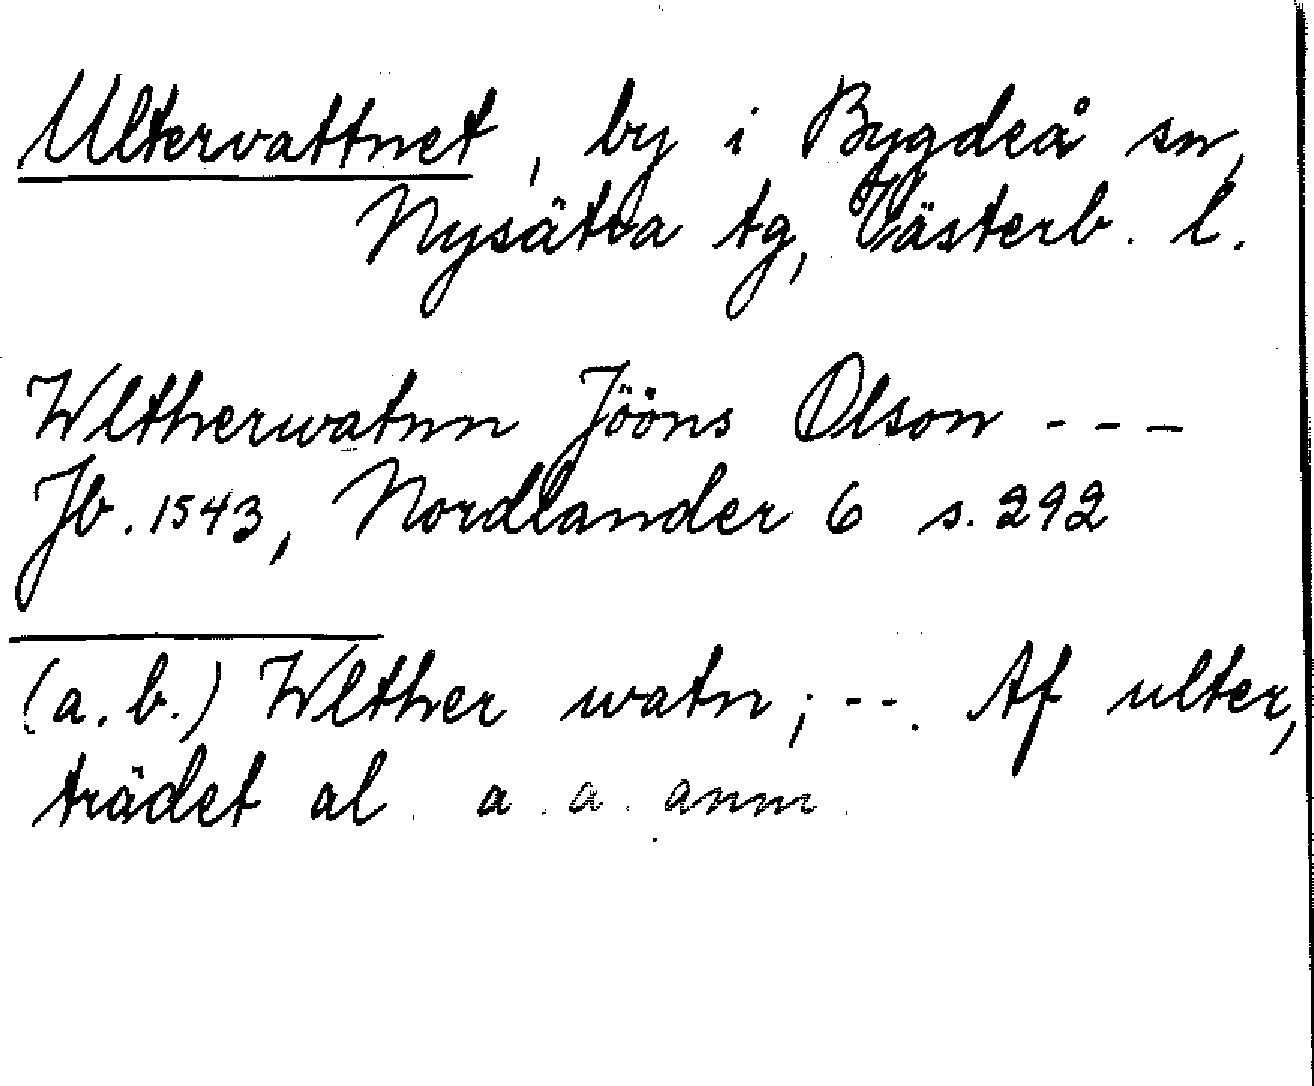 Ultervattnet, by i Bygdeå sn,
Nysätra tg, Västerb. l.
Wltherwatnn Jööns Olson - - -
Jb. 1543, Nordlander 6 s. 292
(a. b.) Wlther watn; - -. Af ulter,
trädet al. a. a. anm.